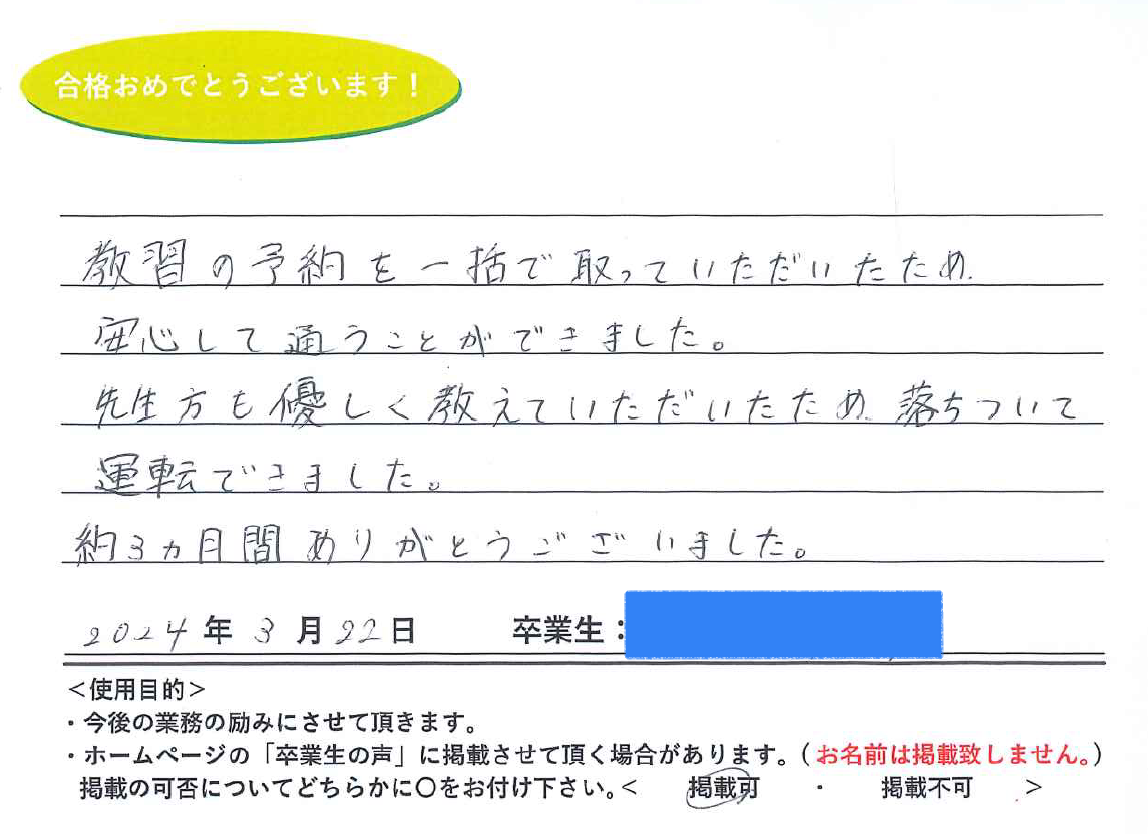 合格おめでとうございます！
教習の予約を一括で取っていただいたため、
安心して通うことができました。
先生方も優しく教えていただいたため、落ちついて
運転できました。
約3ヵ月間ありがとうございました。
2024年3月22日 卒業生：
＜使用目的＞
・今後の業務の励みにさせて頂きます。
・ホームページの「卒業生の声」に掲載させて頂く場合があります。（お名前は掲載致しません。）
掲載の可否についてどちらかに〇をお付け下さい。＜ 掲載可 ・ 掲載不可 ＞